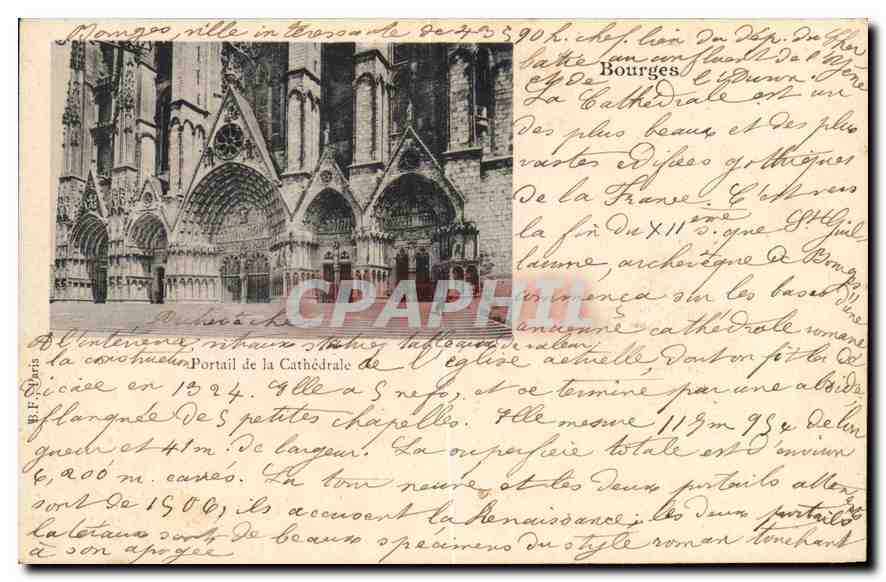 Bourges, ville intéressante de 43590 h. chef. lieu du dép. du Cher
batie au confluent de l'Yèvre
et de l'Auron.
Bourges
La Cathédrale est un
des plus beaux et des plus
vastes édifices gothiques
de la France. C'est vers
la fin du XIIème s. que St Guil
laume, archevêque de Bourges
commença sur les bases d'une
ancienne cathédrale romane
CPAPHIL.com
A l'intérieur, vitraux statues tableaux de valeur
la construction de l'église actuelle, dont on fit la dé
Portail de la Cathédrale
B.F., Paris
dicace en 1324. Elle a 5 nefs, et se termine par une abside
flanquée de 5 petites chapelles. Elle mesure 115m 95 de lon
gueur et 41m. de largeur. La superficie totale est d'environ
6,200 m. carrés. La tour neuve et les deux portails
sont de 1506, ils accusent la Renaissance; les deux portails
latéraux sont de beaux specimens du style roman touchant
à son apogée